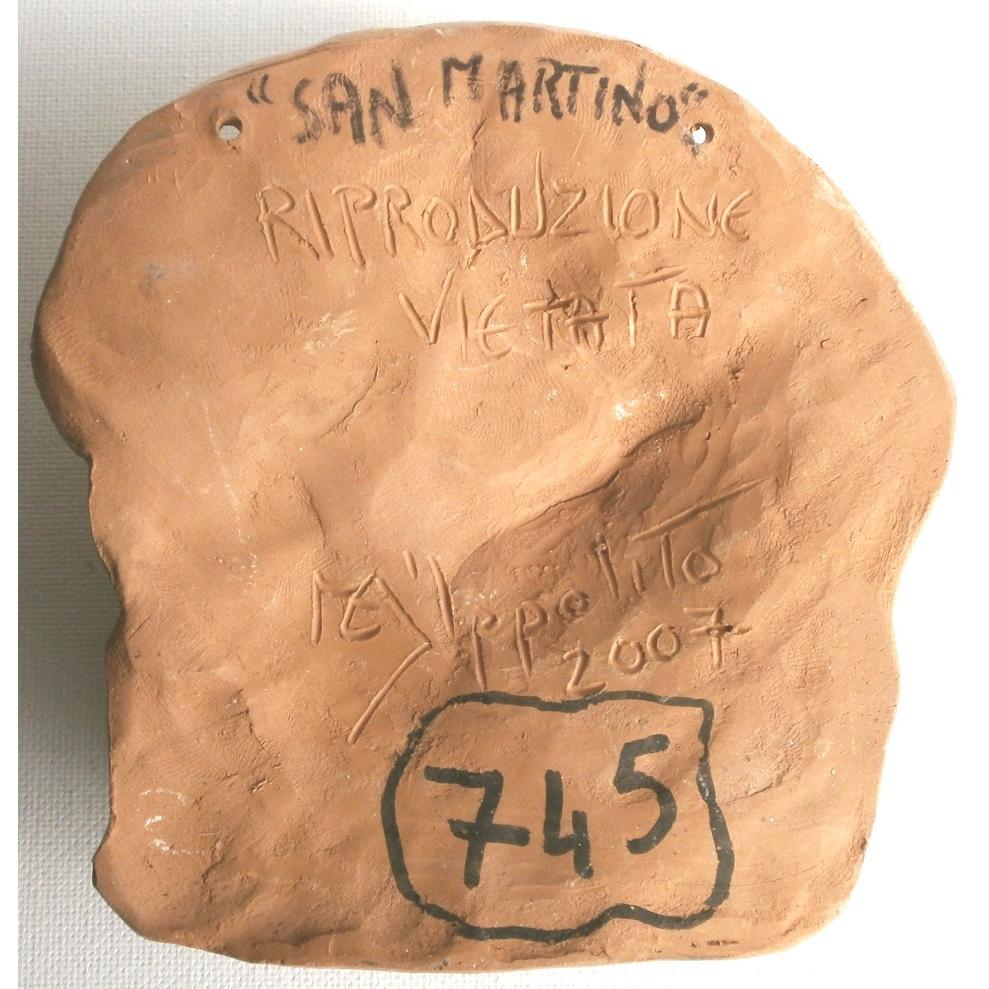 "SAN MARTINO"
RIPRODUZIONE
VIETATA
Ippolito
2007
745